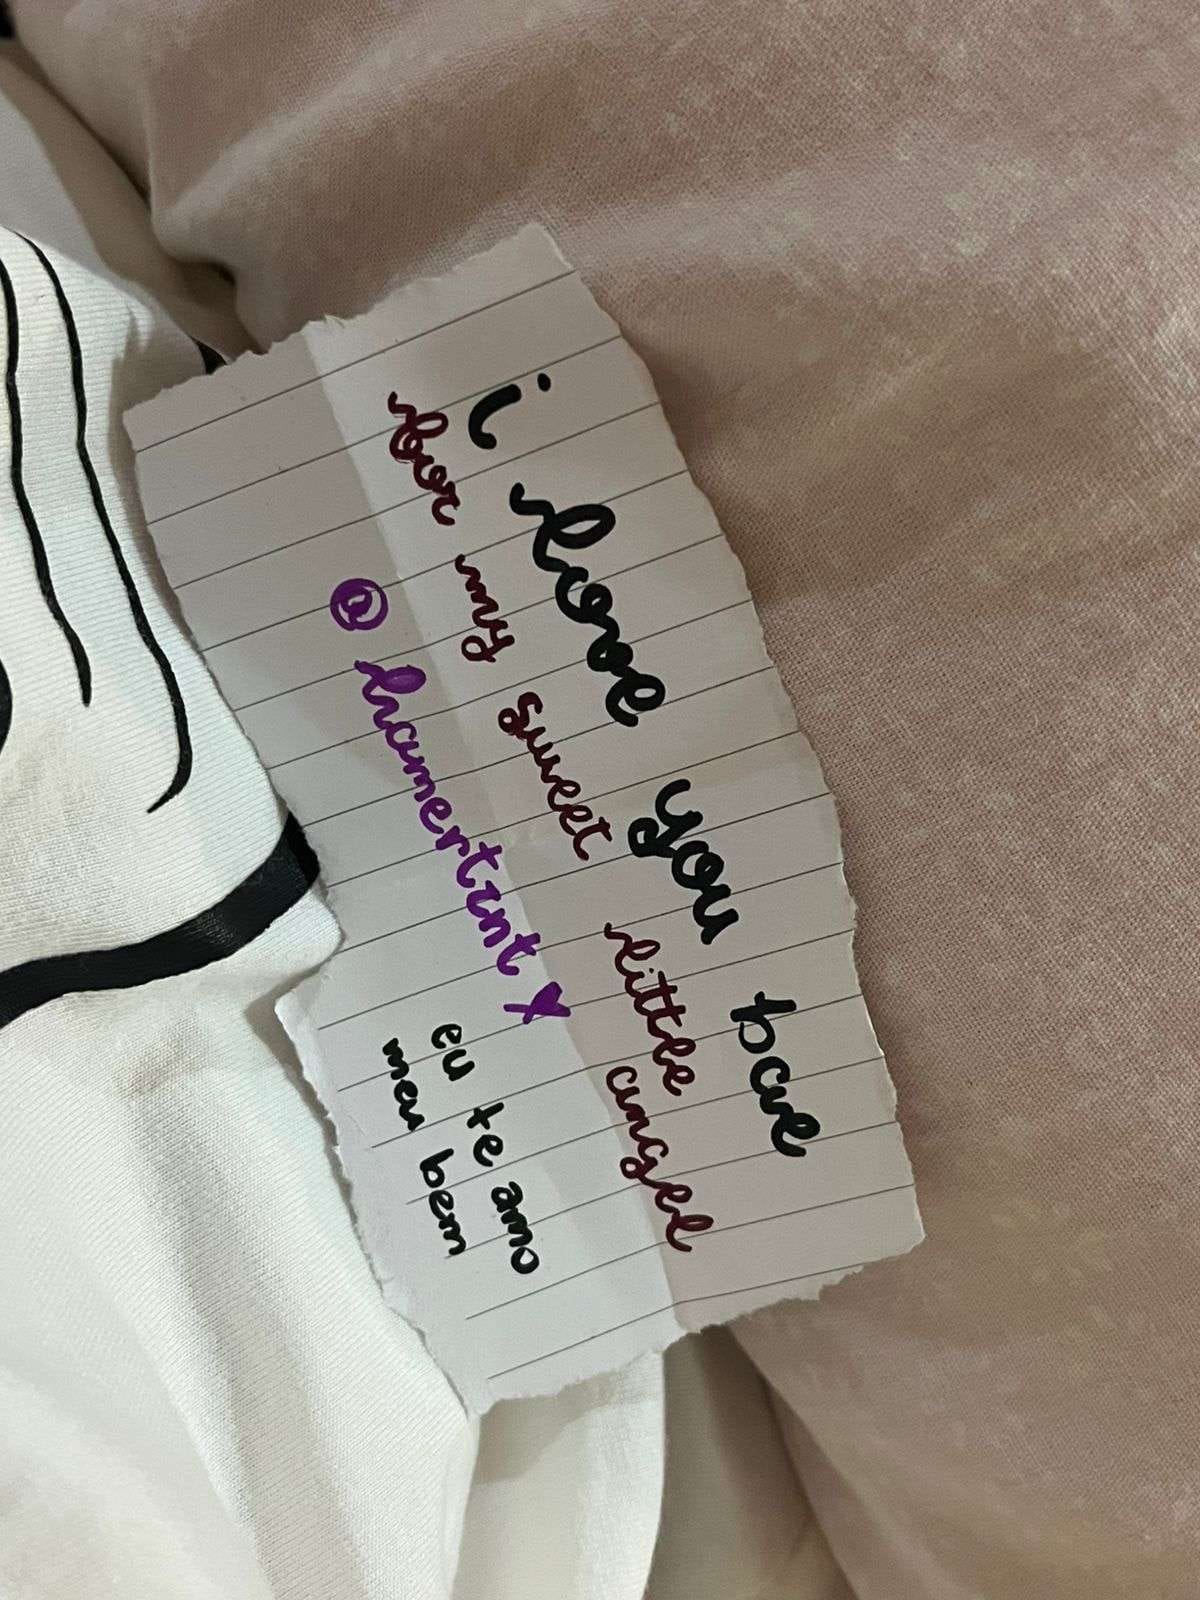 i love you bae
for my sweet little angel
@
eu te amo
meu bem